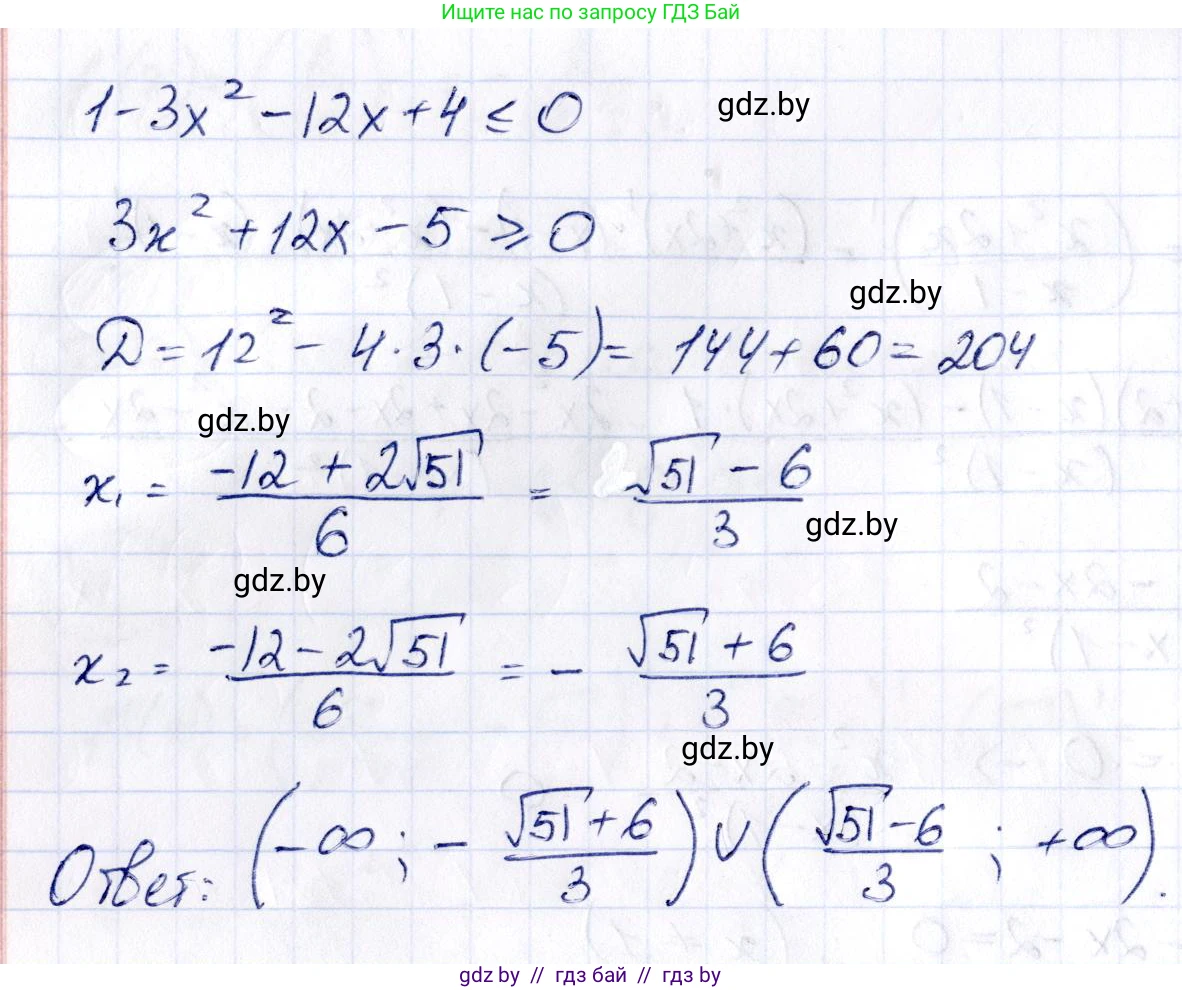 Ищите нас по запросу ГДЗ Бай
1-3x²-12x+4 ≤ 0
gdz.by
3x²+12x-5 ≥ 0
gdz.by
Д = 12² - 4·3·(-5) = 144+60 = 204
gdz.by
x₁ = (-12+2√51)/6 = (√51-6)/3
gdz.by
gdz.by
x₂ = (-12-2√51)/6 = -(√51+6)/3
gdz.by
Ответ: (-∞; -(√51+6)/3) ∪ ((√51-6)/3; +∞).
gdz.by // гдз бай // гдз by